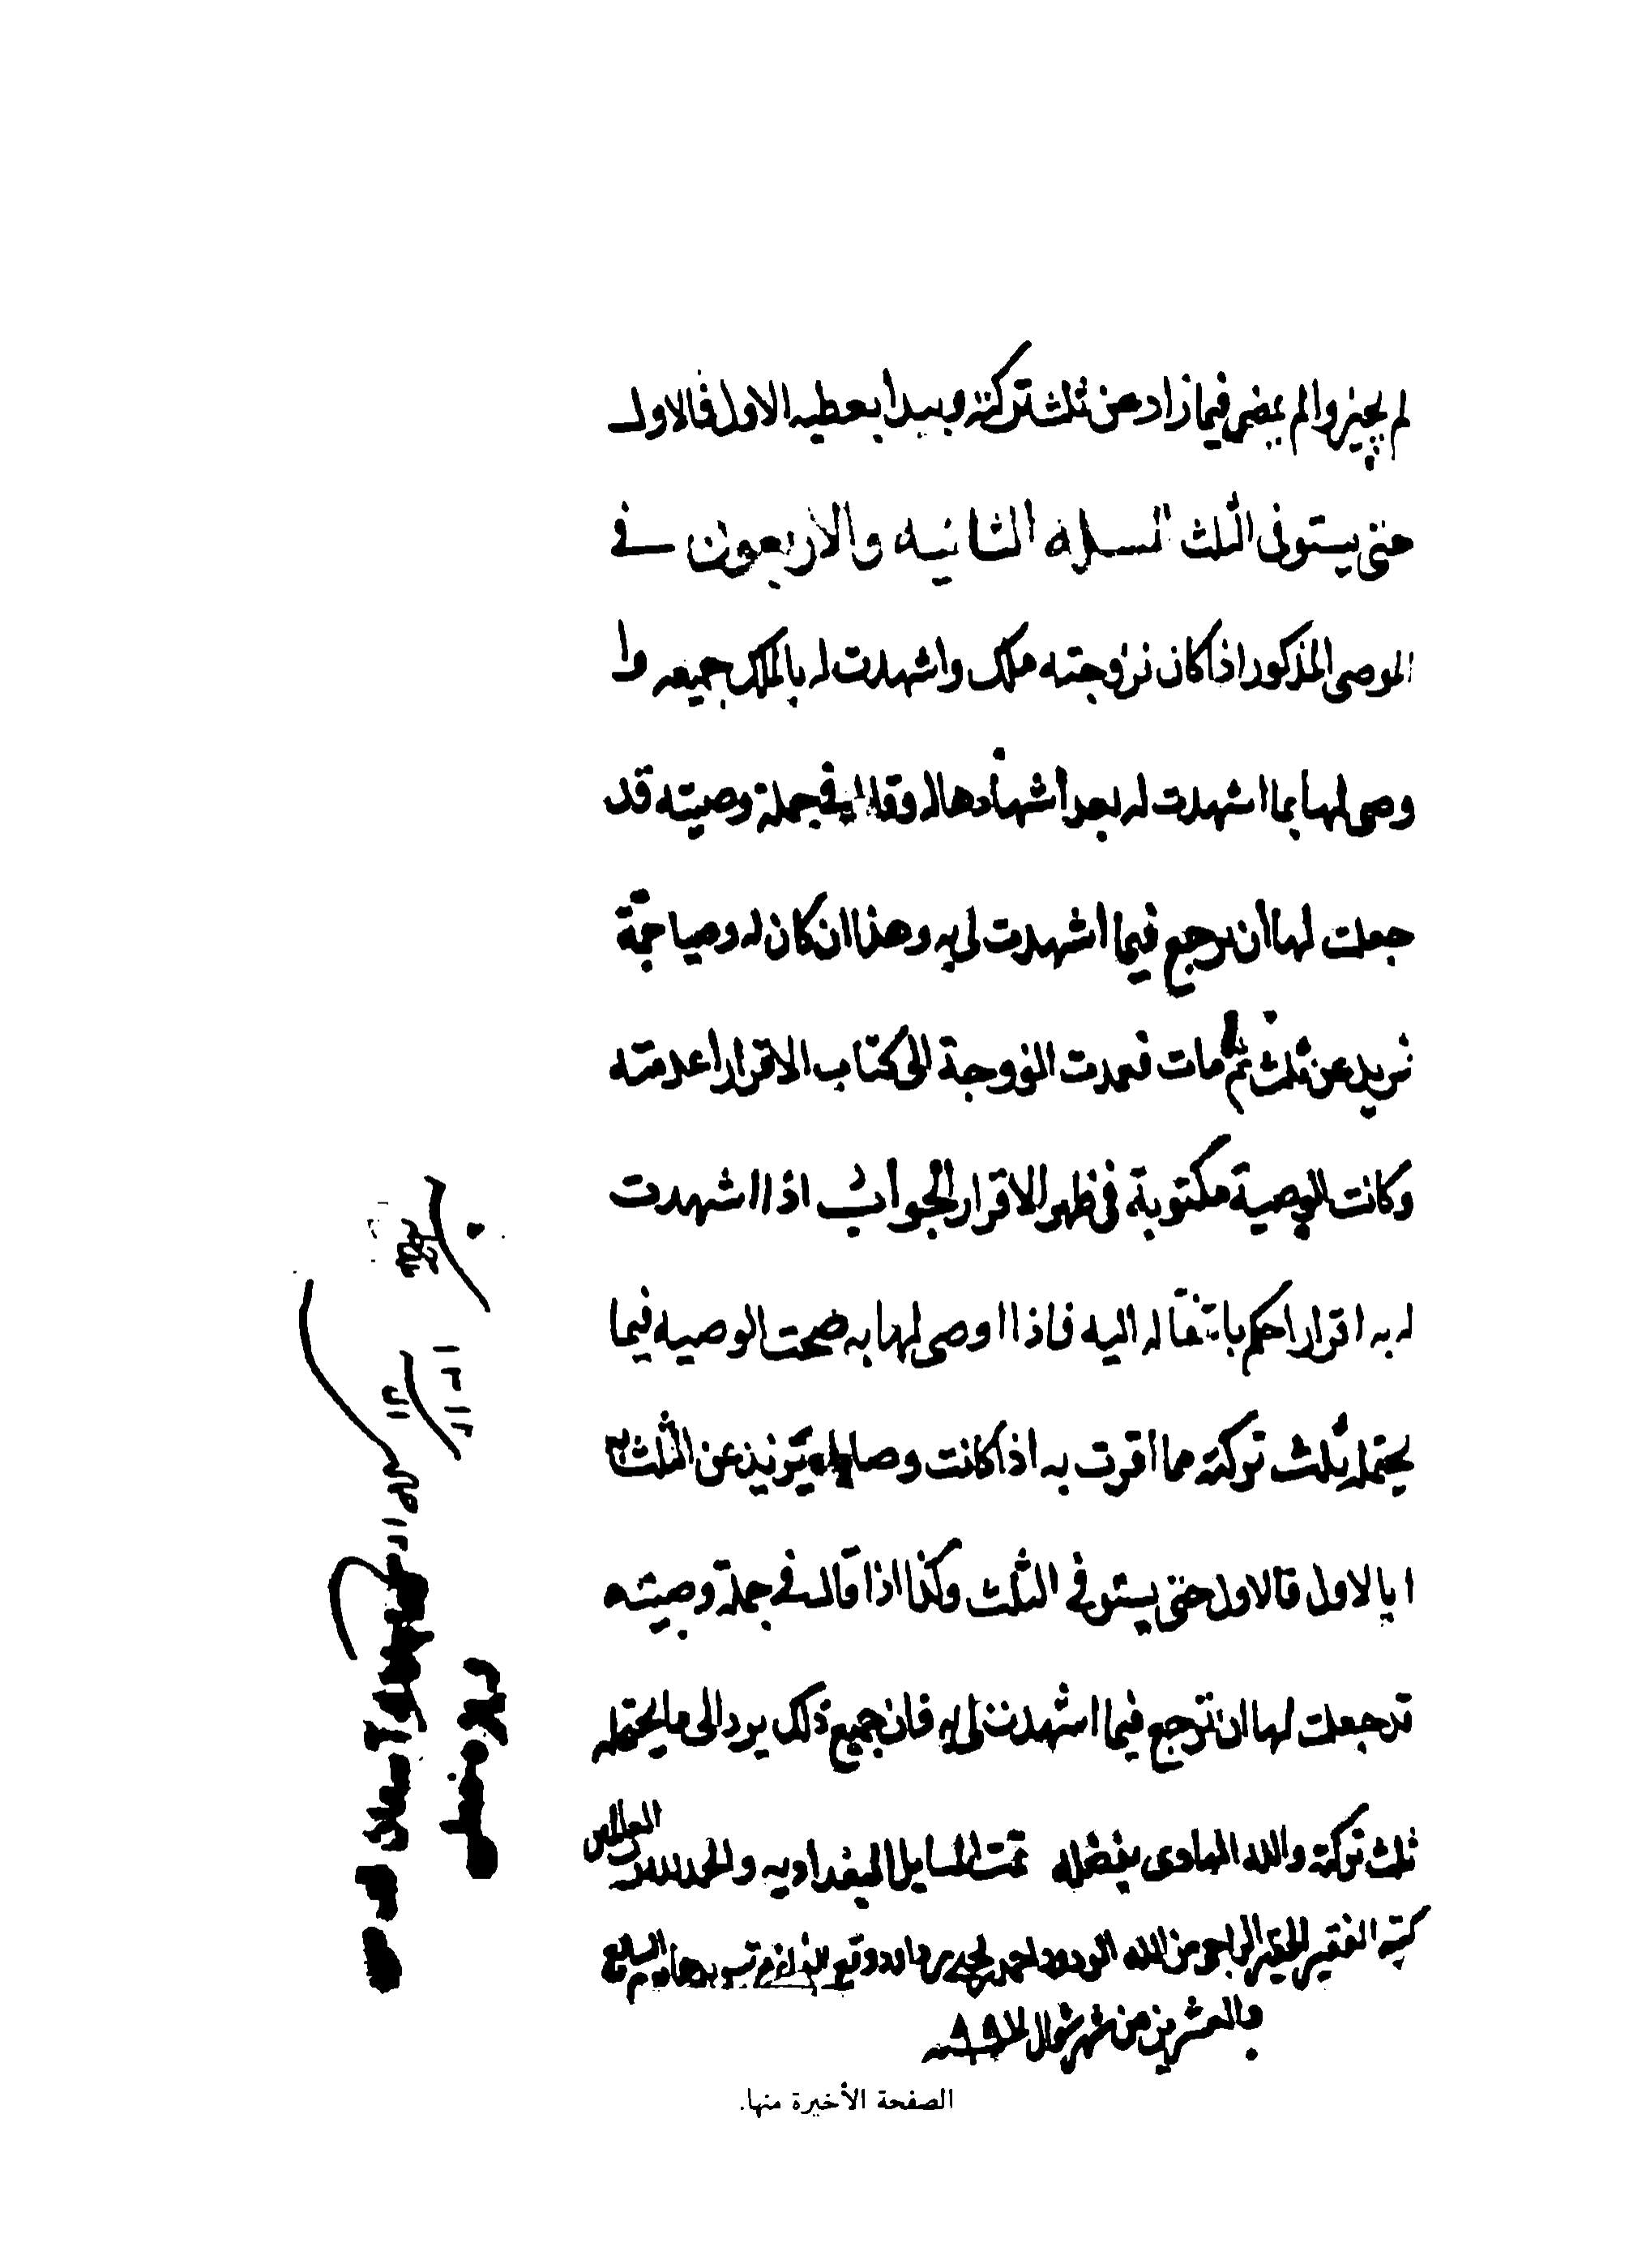 لم يجيزوا لم يمض فيما زاد عن ثلث تركته ويبدأ بعطيه الاول فالاول
حتى يستوفى الثلث المسله الثانيه والاربعون في
الموصى المذكور اذا كان لزوجته ملك واشهدت له بالملك جميعه وا
وصى لها بما اشهدت له بعد اشهادها له وقال في جملة وصيته قد
جعلت لها أن ترجع فيما اشهدت لى به وهذا ان كان له وصيا جمة
تزيد عن ثلث ثم مات فعمدت الزوجة الى كتاب الاقرار اعدمته
وكانت الوصية مكتوبة في ظهر الاقرار الجواب اذا اشهدت
له به اقرارا حكم بانتقاله اليه فاذا اوصى لها به صحت الوصيه فيما
يحتمله ثلث تركته مما اقرت به اذا كانت وصاياه تزيد عن الثلث
ا بالاول فالاول حتى يستوفي الثلث وكذا اذا قال في جملة وصيته
قد جعلت لها ان ترجع فيما اشهدت لى به فان جميع ذلك يرد الى ما يحتمله
ثلث تركته والله الهادى بفضله تمت المسايل البغداديه والحمد لله رب العالمين
كتبه الفقير الحقير الراجى من الله الودود احمد بن يحيى بن داود ووقع الفراغ من تسويدها يوم السابع
والعشرين من شهر شوال
الصفحة الأخيرة منها.